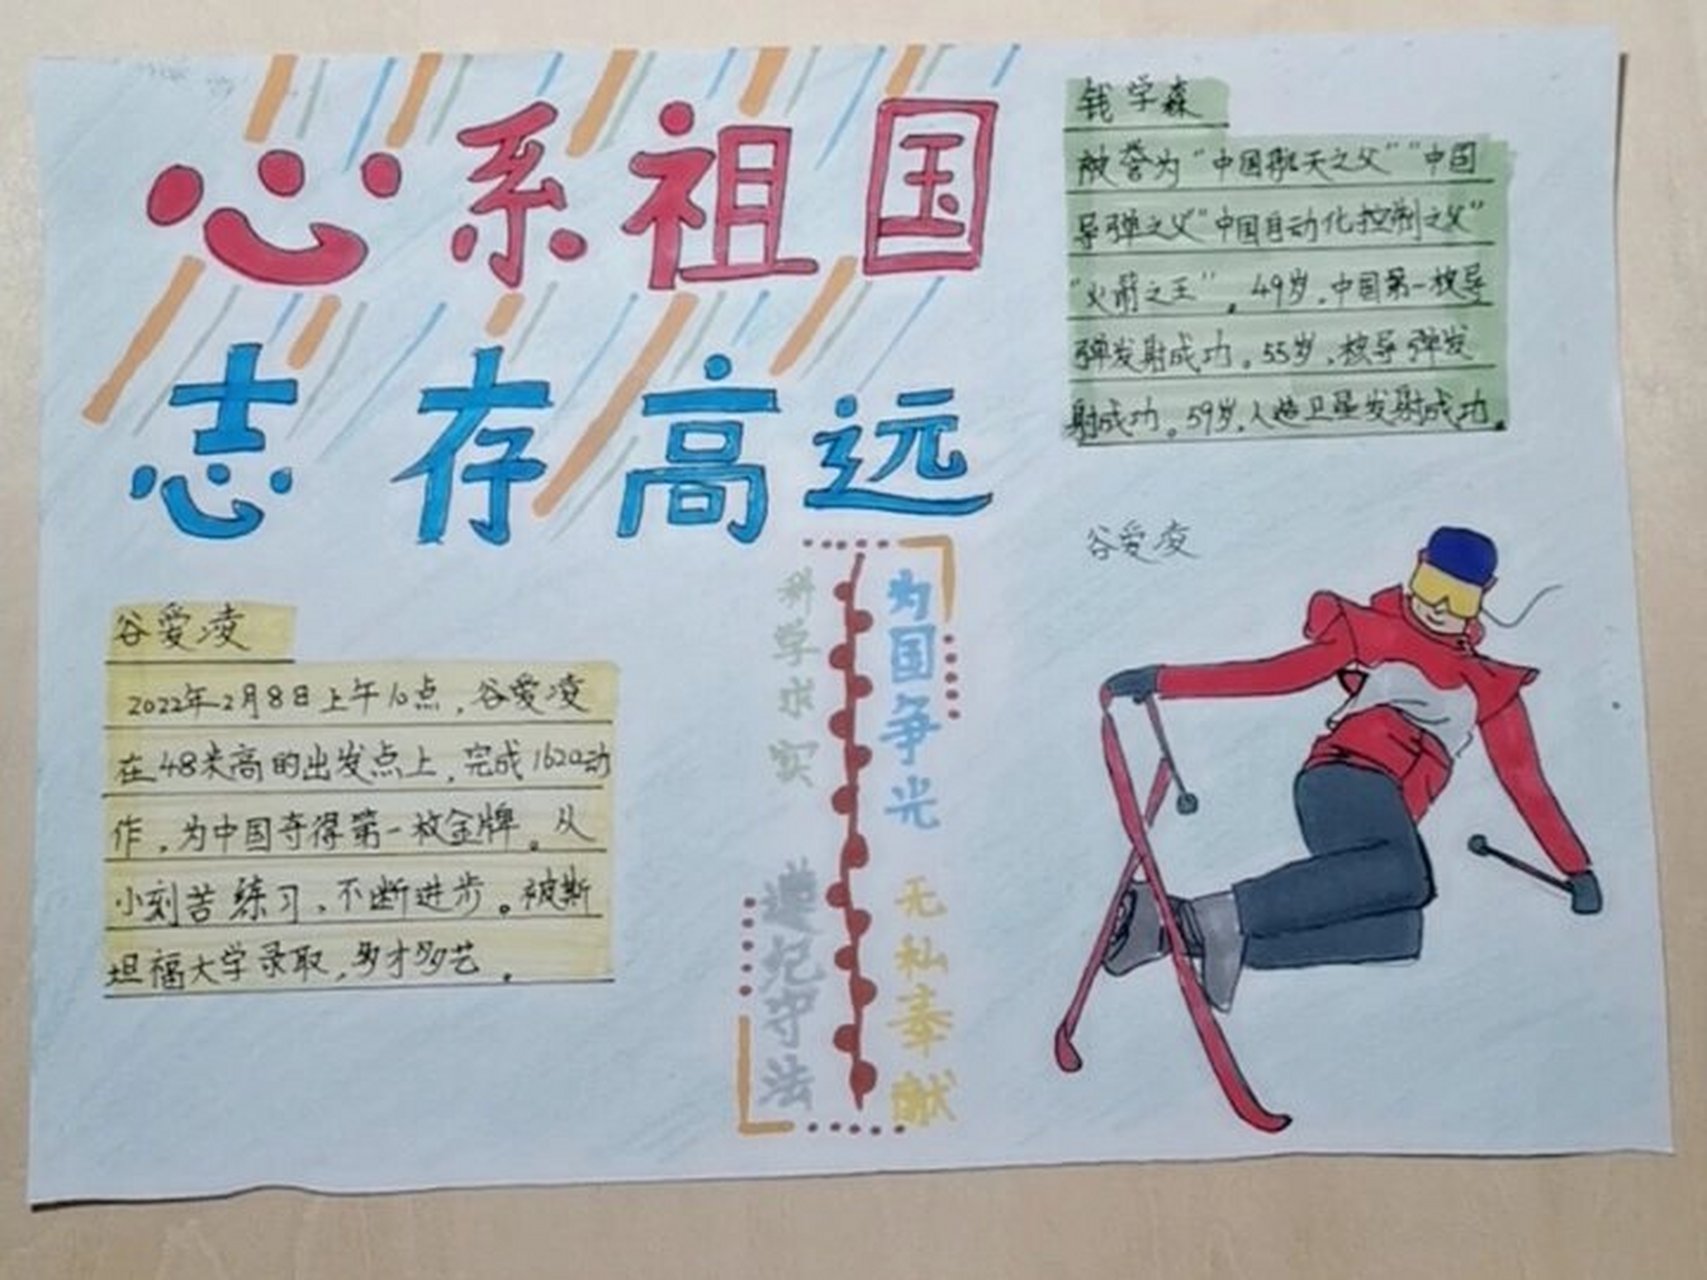 心系祖国
志存高远
钱学森
被誉为“中国航天之父”“中国
导弹之父”“中国自动化控制之父”
“火箭之王”。49岁，中国第一枚导
弹发射成功。55岁，核导弹发
射成功。59岁，人造卫星发射成功。
谷爱凌
2022年2月8日上午10点，谷爱凌
在48米高的出发点上，完成1620动
作，为中国夺得第一枚金牌。从
小刻苦练习，不断进步。被斯
坦福大学录取，多才多艺。
为国争光
无私奉献
科学求实
遵纪守法
谷爱凌